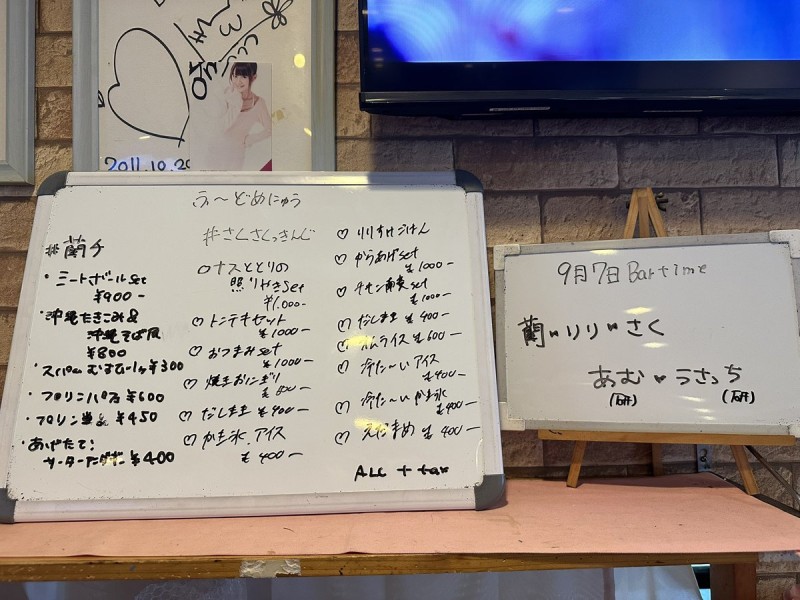 2011.10.29
ふ〜どめにゅう
#蘭チ
・ミートボールset
¥900-
・沖縄たきこみ&
沖縄そば風
¥800
・スパムむすび ¥300
・プリンパフェ ¥600
・プリン単品 ¥450
・あげたて!
サーターアンダギー ¥400
#さくさくっきんぐ
ナスととりの
照りやきset
¥1,000-
♡トンテキセット
¥1000-
♡おつまみset
¥1000-
♡焼きおにぎり
♡だしまき ¥400-
♡かき氷、アイス
¥400-
♡りりすけごはん
♡からあげset
¥1000-
♡チキン南蛮set
¥1000-
♡だしまき ¥400-
♡オムライス ¥600-
♡冷た〜いアイス
¥400-
♡冷た〜いかき氷
¥400-
♡えだまめ ¥400-
ALL + tax
9月7日 Bartime
蘭♡りり♡さく
あむ♡うさっち
(研) (研)